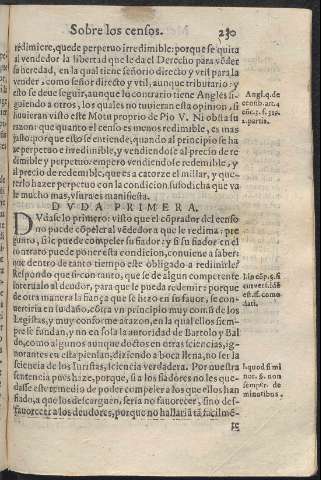 Sobre los censos. 230
redimiere, quede perpetuo irredimible: porque se quita
al vendedor la libertad que le da el Derecho para vẽder
su heredad, en la qual tiene señorio directo y vtil para la
vender, como señor directo y vtil, aunque tributario: y
esto se deue seguir, aunque lo contrario tiene Angles si-
guiendo a otros, los quales no tuuieran esta opinion, si
huuieran visto este Motu proprio de Pio V. Ni obsta su
razon: que quanto el censo es menos redimible, es mas
justo: porque esto se entiende, quando al principio se ha
ze perpetuo e irredimible, y vendiendose al precio de re
dimible y perpetuo: empero vendiendole redemible, y
al precio de redemible, que es a catorze el millar, y que-
rerlo hazer perpetuo con la condicion susodicha que va
le mucho mas, vsura es manifiesta.
DVDA PRIMERA.
DVdase lo primero: visto que el cõprador del censo
no puede cõpeler al vẽdedor a que le redima: pre
gunto, si le puede compeler su fiador: y si su fiador en el
contrato puede poner esta condicion, conuiene a saber:
que dentro de tanto tiempo este obligado a redimirle?
Respondo que si: con tanto, que se de algun competente
interualo al deudor, para que le pueda redemir: porque
de otra manera la fiança que se hizo en su fauor, se con-
uertiria en su daño, cõtra vn principio muy comũ de los
Legistas, y muy conforme a razon, en la qual ellos siem-
pre se fundan, y no en sola la autoridad de Bartolo y Bal
do, como algunos aunque doctos en otras sciencias, ig-
norantes en esta piensan, diziendo a boca llena, no ser la
sciencia de los Iuristas, sciencia verdadera. Por nuestra
sentencia pues haze, porque, si a los fiadores no les que-
dasse este remedio de poder compeler a los que ellos han
fiado, a que los descarguen, seria no fauorecer, sino des-
fauorecer a los deudores, porque no hallariã tã facilmẽ-
Angl. q. de
2. parte.
minoribus.